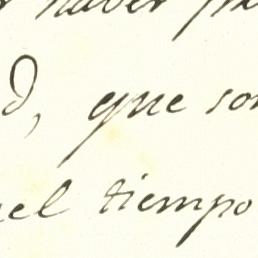 haver
d, que so
el tiempo